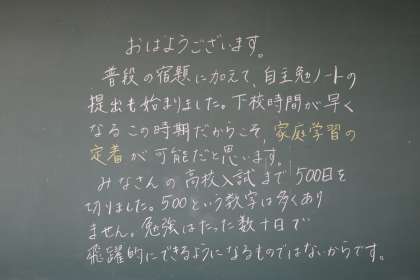 おはようございます。
普段の宿題に加えて、自主勉ノートの
提出も始まりました。下校時間が早く
なるこの時期だからこそ、家庭学習の
定着が可能だと思います。
みなさんの高校入試まで500日を
切りました。500という数字は多くあり
ません。勉強はたった数十日で
飛躍的にできるようになるものではないからです。